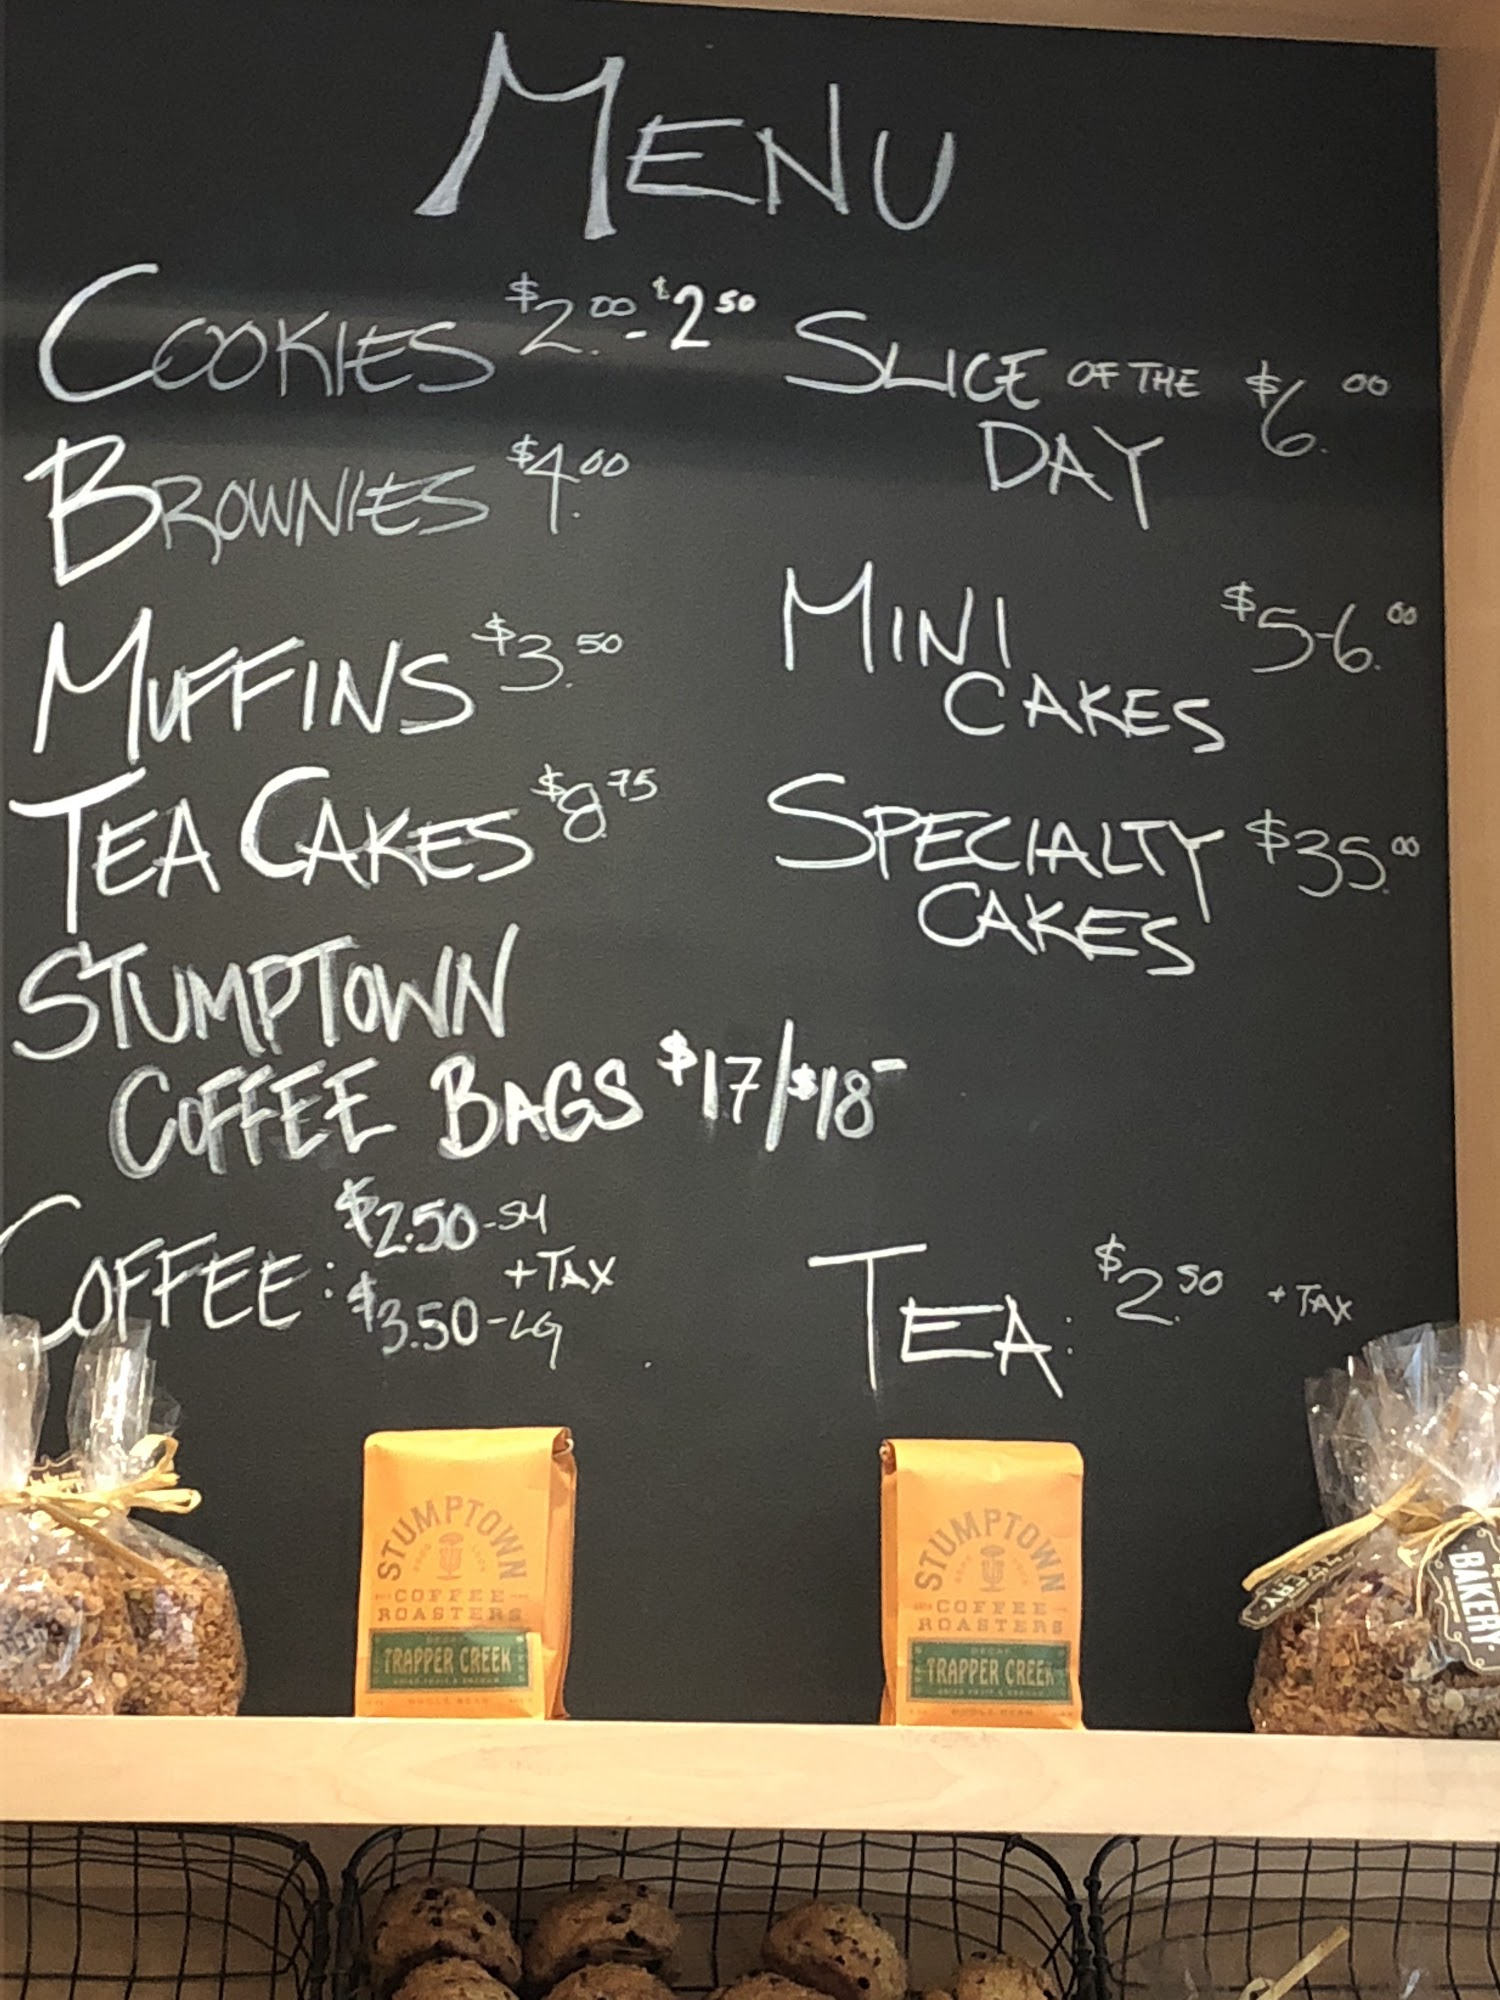 MENU
COOKIES $2.00-$2.50
BROWNIES $4.00
MUFFINS $3.50
TEA CAKES $8.75
STUMPTOWN
COFFEE BAGS $17/$18-
COFFEE: $2.50-SM
+TAX
$3.50-LG
SLICE OF THE $6.00
DAY
MINI $5-6.00
CAKES
SPECIALTY $35.00
CAKES
TEA: $2.50 +TAX
STUMPTOWN
COFFEE
ROASTERS
DECAF
TRAPPER CREEK
WHOLE BEAN
STUMPTOWN
COFFEE
ROASTERS
DECAF
TRAPPER CREEK
WHOLE BEAN
BAKERY